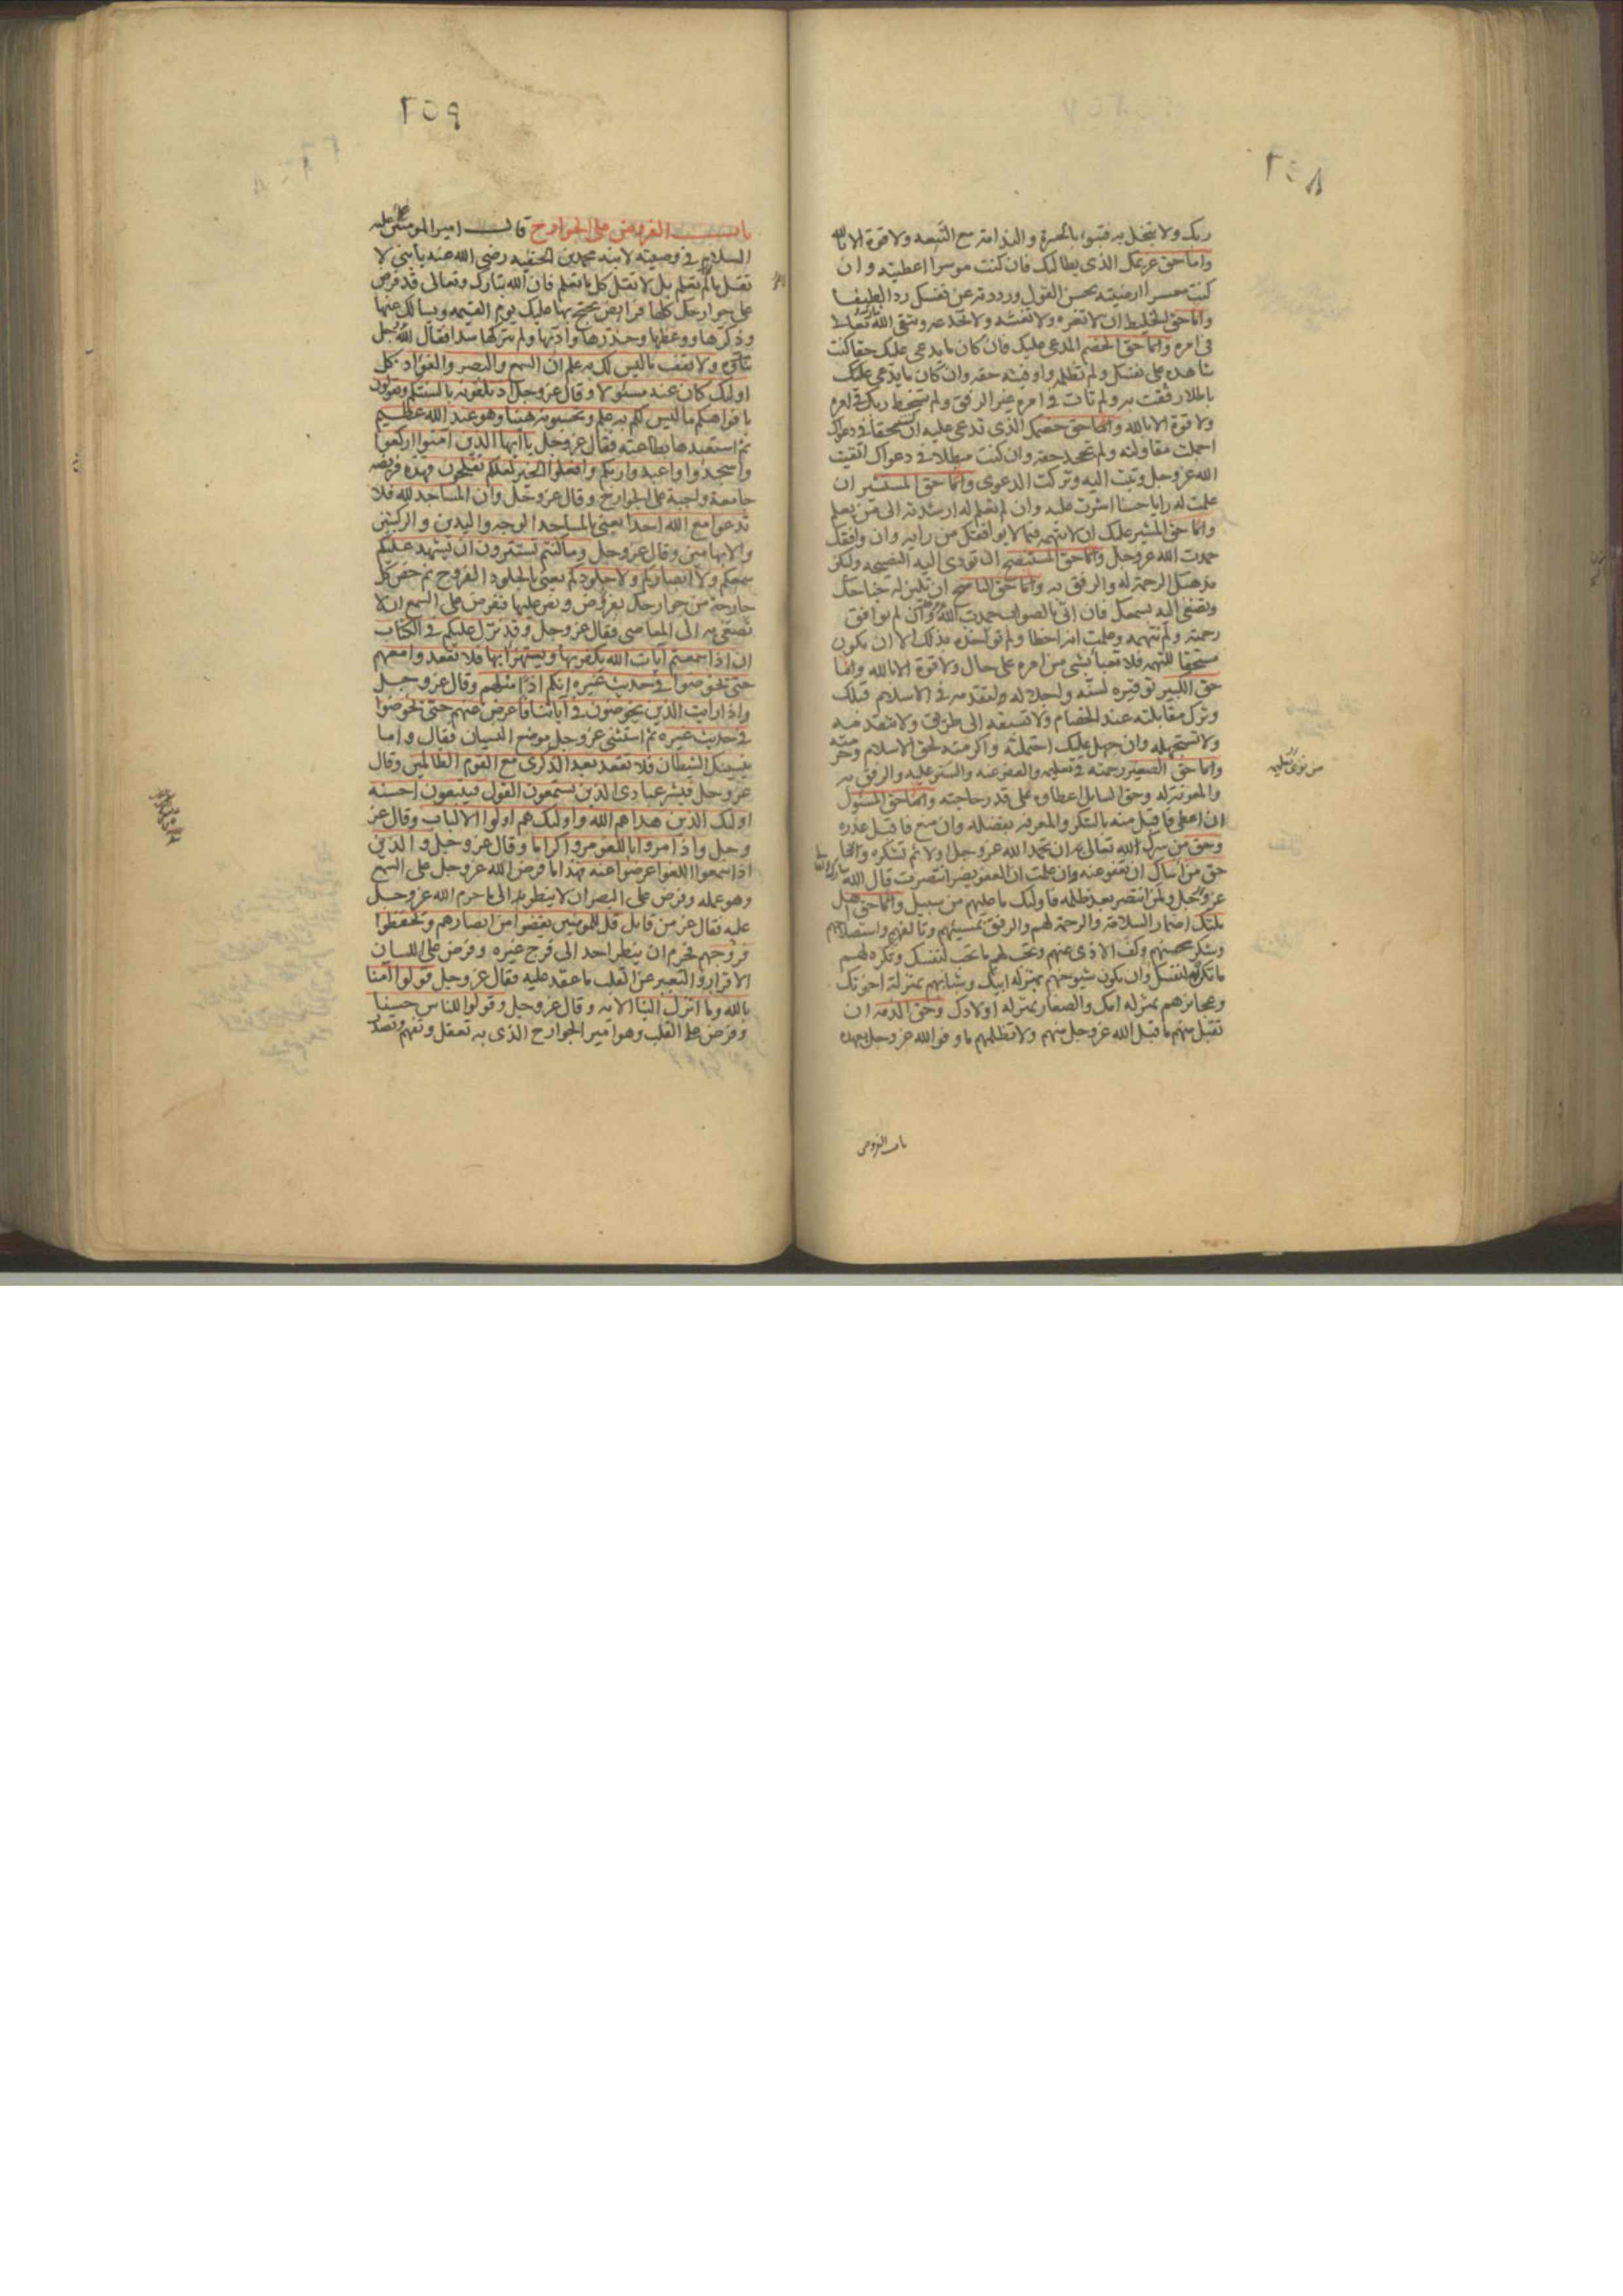 ٢٥٨
ربك ولا تبخل به فتبوء بالحسرة والندامة مع التبعه ولا قوة الا بالله
واما حق غريمك الذى يطالبك فان كنت موسرا اعطيته وان
كنت معسرا ارضيته بحسن القول ورددته عن نفسك ردا لطيفا
واما حق الخليط ان لا تغره ولا تغشه ولا تخدعه وتتقى الله تعالى
فى امره واما حق الخصم المدعى عليك فان كان ما يدعى عليك حقا كنت
شاهده على نفسك ولم تظلمه واوفيته حقه وان كان ما يدعى عليك
باطلا رفقت به ولم تات فى امره غير الرفق ولم تسخط ربك فى امره
ولا قوة الا بالله واما حق خصمك الذى تدعى عليه ان كنت محقا فى دعواك
اجملت مقاولته ولم تجحد حقه وان كنت مبطلا فى دعواك اتقيت
الله عز وجل وتبت اليه وتركت الدعوى واما حق المستشير ان
علمت له رايا حسنا اشرت عليه وان لم تعلم له ارشدته الى من يعلم
واما حق المشير عليك ان لا تتهمه فيما لا يوافقك من رايه وان وافقك
حمدت الله عز وجل واما حق المستنصح ان تودى اليه النصيحه وليكن
مذهبك الرحمة له والرفق به واما حق الناصح ان تلين له جناحك
وتصغى اليه بسمعك فان اتى بالصواب حمدت الله عز وجل وان لم يوافق
رحمته ولم تتهمه وعلمت انه اخطا ولم تواخذه بذلك الا ان يكون
مستحقا للتهمه فلا تعبأ بشى من امره على حال ولا قوة الا بالله واما
حق الكبير توقيره لسنه واجلاله لتقدمه فى الاسلام قبلك
وترك مقابلته عند الخصام ولا تسبقه الى طريق ولا تتقدمه
ولا تستجهله وان جهل عليك احتملته واكرمته لحق الاسلام وحرمته
واما حق الصغير رحمته فى تعليمه والعفو عنه والستر عليه والرفق به
والمعونة له وحق السايل اعطاوه على قدر حاجته واما حق المسئول
ان اعطى فاقبل منه بالشكر والمعرفه بفضله وان منع فاقبل عذره
وحق من سرك الله تعالى به ان تحمد الله عز وجل اولا ثم تشكره واما
حق من اساك ان تعفو عنه وان علمت ان العفو يضر انتصرت قال الله
عز وجل ولمن انتصر بعد ظلمه فاولئك ما عليهم من سبيل واما حق اهل
ملتك اضمار السلامة والرحمة لهم والرفق بمسيئهم وتالفهم واستصلاحهم
وشكر محسنهم وكف الاذى عنهم وتحب لهم ما تحب لنفسك وتكره لهم
ما تكره لنفسك وان يكون شيوخهم بمنزلة ابيك وشبابهم بمنزلة اخوتك
وعجايزهم بمنزلة امك والصغار بمنزلة اولادك وحق الذمه ان
تقبل منهم ما قبل الله عز وجل منهم ولا تظلمهم ما وفوا لله عز وجل بعهده
باب الفروض
٢٥٩
باب الفروض على الجوارح قال امير المومنين عليه
السلام فى وصيته لابنه محمد بن الحنفيه رضى الله عنه يا بنى لا
تقل ما لم تعلم بل لا تقل كل ما تعلم فان الله تبارك وتعالى قد فرض
على جوارحك كلها فرايض يحتج بها عليك يوم القيمه ويسالك عنها
وذكرها ووعظها وحذرها وادبها ولم يتركها سدا فقال الله عز وجل
ولا تقف ما ليس لك به علم ان السمع والبصر والفؤاد كل
اوليك كان عنه مسئولا وقال عز وجل اذ تلقونه بالسنتكم وتقولون
بافواهكم ما ليس لكم به علم وتحسبونه هينا وهو عند الله عظيم
ثم استعبدها بطاعته فقال عز وجل يا ايها الذين امنوا اركعوا
واسجدوا واعبدوا ربكم وافعلوا الخير لعلكم تفلحون فهذه فريضه
جامعة واجبة على الجوارح وقال عز وجل وان المساجد لله فلا
تدعوا مع الله احدا يعنى بالمساجد الوجه واليدين والركبتين
والابهامين وقال عز وجل وما كنتم تستترون ان يشهد عليكم
سمعكم ولا ابصاركم ولا جلودكم يعنى بالجلود الفروج ثم خص كل
جارحة من جوارحك بفرض ونص عليها ففرض على السمع ان لا
تصغى به الى المعاصى فقال عز وجل وقد نزل عليكم فى الكتاب
ان اذا سمعتم آيات الله يكفر بها ويستهزأ بها فلا تقعدوا معهم
حتى يخوضوا فى حديث غيره انكم اذا مثلهم وقال عز وجل
واذا رايت الذين يخوضون فى آياتنا فاعرض عنهم حتى يخوضوا
فى حديث غيره ثم استثنى عز وجل موضع النسيان فقال واما
ينسينك الشيطان فلا تقعد بعد الذكرى مع القوم الظالمين وقال
عز وجل فبشر عبادى الذين يستمعون القول فيتبعون احسنه
اوليك الذين هداهم الله واوليك هم اولوا الالباب وقال عز
وجل واذا مروا باللغو مروا كراما وقال عز وجل والذين
اذا سمعوا اللغوا عرضوا عنه فهذا ما فرض الله عز وجل على السمع
وهو عمله وفرض على البصر ان لا ينظر به الى ما حرم الله عز وجل
عليه فقال عز من قايل قل للمومنين يغضوا من ابصارهم ويحفظوا
فروجهم فحرم ان ينظر احد الى فرج غيره وفرض على اللسان
الاقرار والتعبير عن القلب ما عقد عليه فقال عز وجل قولوا آمنا
بالله وما انزل الينا الايه وقال عز وجل وقولوا للناس حسنا
وفرض على القلب وهو امير الجوارح الذى به تعقل وتفهم وتصدر